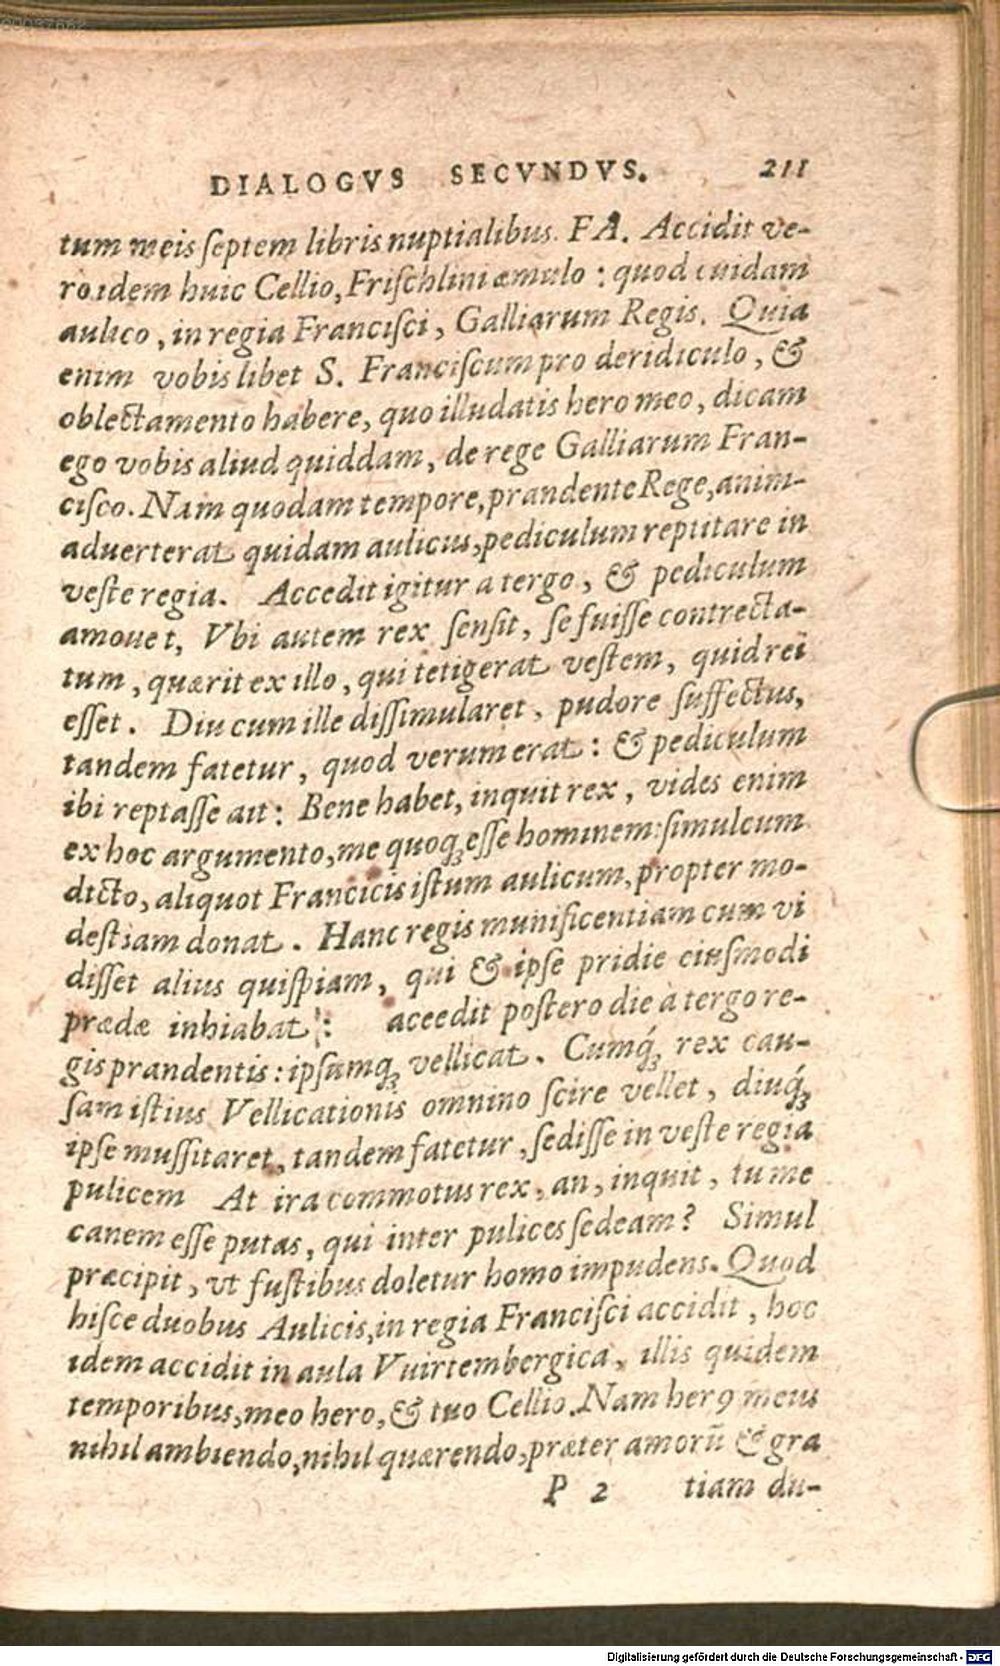 DIALOGVS SECVNDVS. 211
tum meis ſeptem libris nuptialibus. FA. Accidit ve-
ro idem huic Cellio, Friſchlini æmulo : quod cuidam
aulico, in regia Franciſci, Galliarum Regis. Quia
enim vobis libet S. Franciſcum pro deridiculo, &
oblectamento habere, quo illudatis hero meo, dicam
ego vobis aliud quiddam, de rege Galliarum Fran-
ciſco. Nam quodam tempore, prandente Rege, anim-
aduerterat quidam aulicus, pediculum reptitare in
veſte regia. Accedit igitur a tergo, & pediculum
amouet, Vbi autem rex ſenſit, ſe fuiſſe contrecta-
tum, quærit ex illo, qui tetigerat veſtem, quid rei
eſſet. Diu cum ille diſſimularet, pudore ſuffectus,
tandem fatetur, quod verum erat : & pediculum
ibi reptaſſe ait : Bene habet, inquit rex, vides enim
ex hoc argumento, me quoqꝫ eſſe hominem : ſimulcum
dicto, aliquot Francicis iſtum aulicum, propter mo-
deſtiam donat. Hanc regis munificentiam cum vi
diſſet alius quiſpiam, qui & ipſe pridie eiuſmodi
prædæ inhiabat : aceedit poſtero die à tergo re-
gis prandentis : ipſumqꝫ vellicat. Cumq́ꝫ rex cau-
ſam iſtius Vellicationis omnino ſcire vellet, diuq́ꝫ
ipſe muſſitaret, tandem fatetur, ſediſſe in veſte regia
pulicem At ira commotus rex, an, inquit, tu me
canem eſſe putas, qui inter pulices ſedeam? Simul
præcipit, vt fuſtibus doletur homo impudens. Quod
hiſce duobus Aulicis, in regia Franciſci accidit, hoc
idem accidit in aula Vuirtembergica, illis quidem
temporibus, meo hero, & tuo Cellio. Nam herꝰ meus
nihil ambiendo, nihil quærendo, præter amorū & gra
P 2 tiam du-
Digitalisierung gefördert durch die Deutsche Forschungsgemeinschaft - DFG